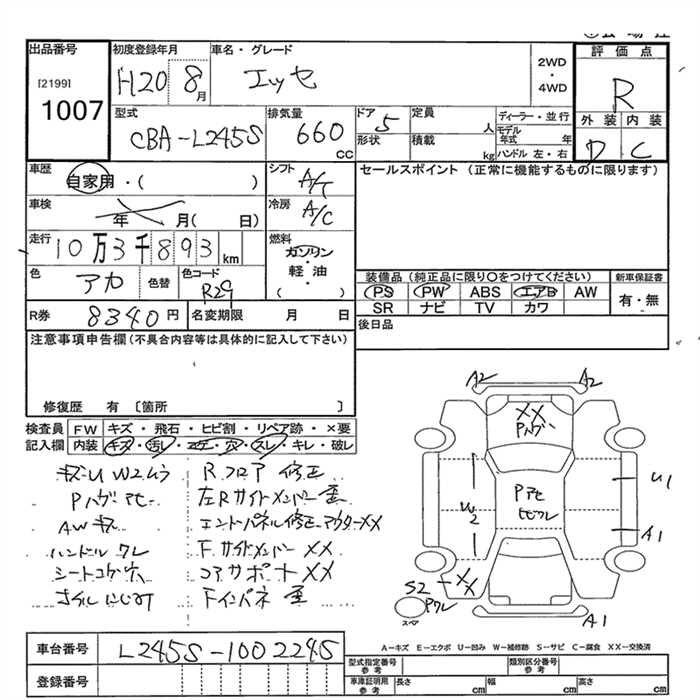 出品番号
[2199]
1007
初度登録年月
H20 8月
車名・グレード
エッセ
2WD
・
4WD
評価点
R
外装 内装
D C
型式
CBA-L245S
排気量
660
CC
ドア
5
形状
定員
人
積載
kg
ディーラー・並行
モデル年式 年
ハンドル 左・右
車歴
自家用・( )
シフト
A/T
車検
年 月( 日)
冷房
A/C
走行
10万3千893km
燃料
ガソリン
・
軽油
( )
色
アカ
色替
色コード
R29
R券
8340円
名変期限 月 日
セールスポイント (正常に機能するものに限ります)
装備品 (純正品に限り○をつけてください)
新車保証書
PS PW ABS エアB AW
有・無
SR ナビ TV カワ
後日品
注意事項申告欄(不具合内容等は具体的に記入して下さい)
修復歴 有 〔箇所 〕
検査員 FW キズ・飛石・ヒビ割・リペア跡・×要
記入欄 内装 キズ・汚レ・コゲ・穴・スレ・キレ・破レ
キズU W2ムラ
Pハゲ アセ
AWキズ
ハンドル スレ
シートコゲ穴
オイルにじみ
Rフロア 修正
左Rサイドメンバー 歪
エンドパネル修正 アウターXX
F.サイドメンバー XX
コアサポート XX
Fインパネ 歪
A2 A2
XX
Pハゲ
Pアセ
U1
W2
A1
S2 XX
スペア
A1
A-キズ E-エクボ U-凹み W-補修跡 S-サビ C-腐食 XX-交換済
車台番号
L245S-1002245
登録番号
型式指定番号
参考
類別区分番号
参考
車庫証明用
参考
長さ cm
幅 cm
高さ cm